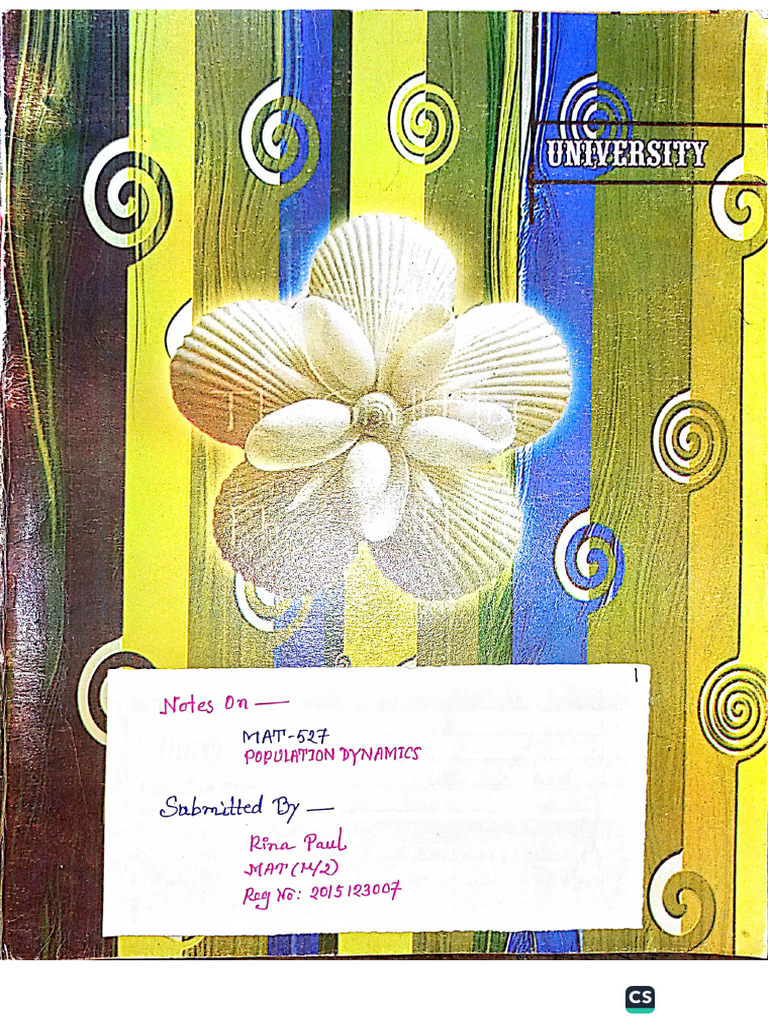 UNIVERSITY
1
Notes On —
MAT-527
POPULATION DYNAMICS
Submitted By —
Rina Paul
MAT (M/2)
Reg No: 2015123007
CS